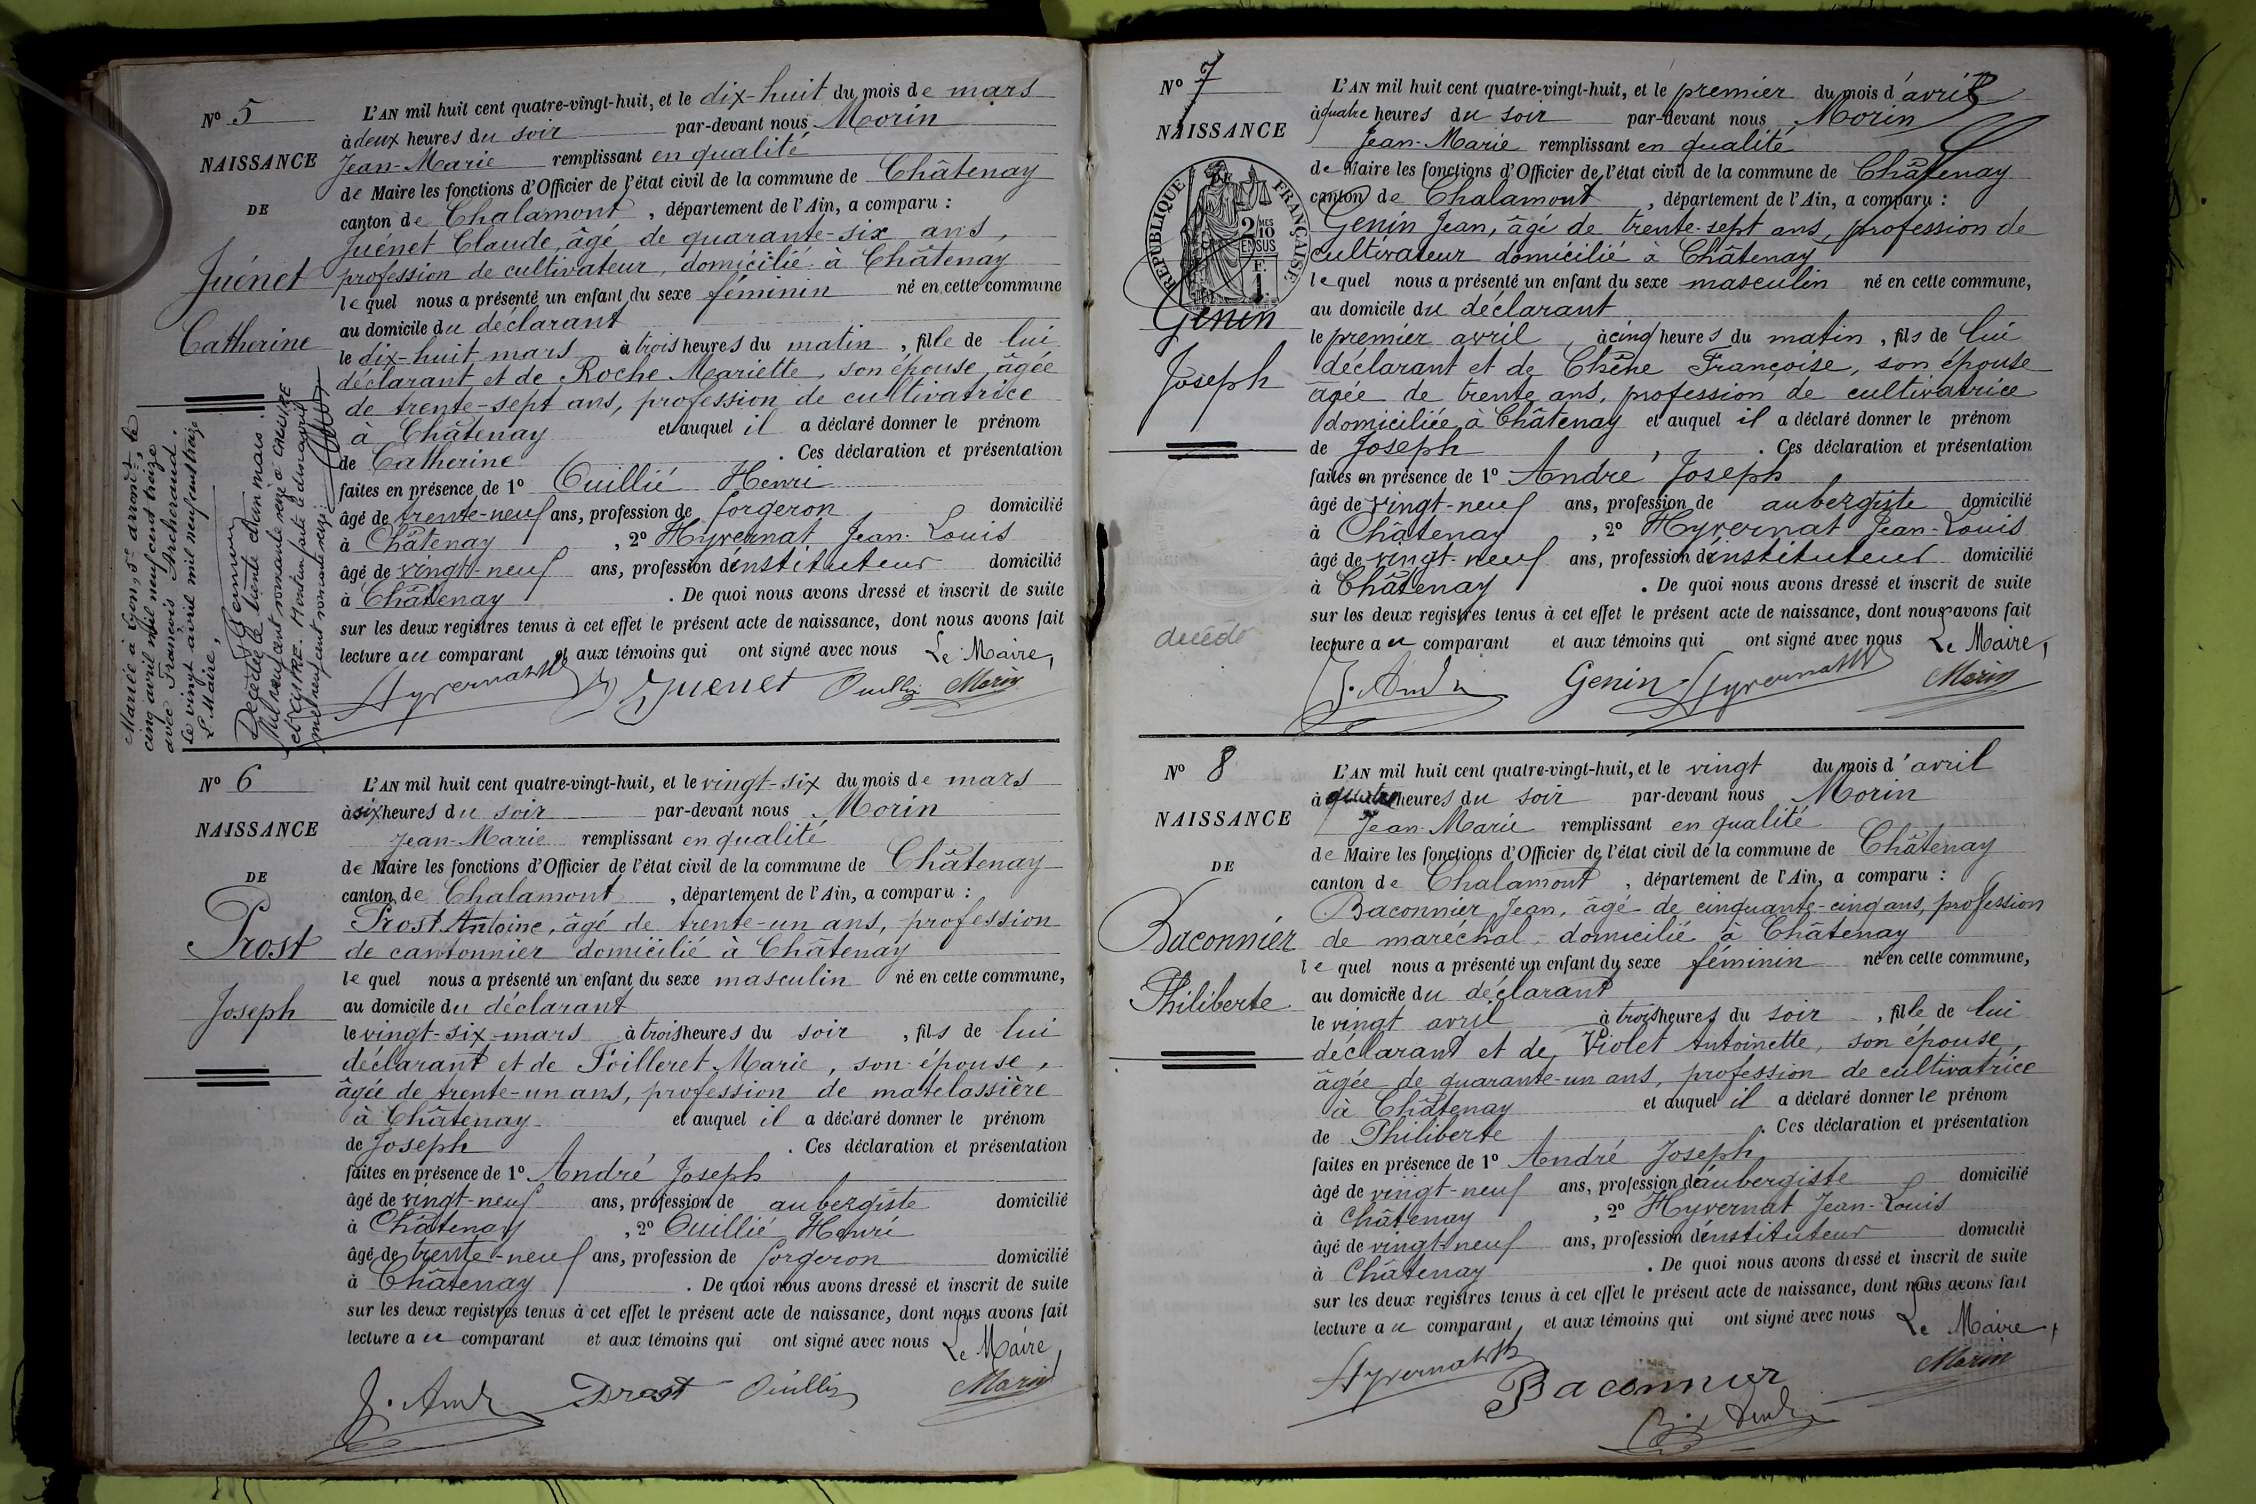 N° 5
NAISSANCE
DE
Juénet
Catherine
L'AN mil huit cent quatre-vingt-huit, et le dix-huit du mois de mars
à deux heures du soir par-devant nous Morin
Jean-Marie remplissant en qualité
de Maire les fonctions d'Officier de l'état civil de la commune de Châtenay
canton de Chalamont, département de l'Ain, a comparu :
Juénet Claude, âgé de quarante-six ans,
profession de cultivateur, domicilié à Châtenay
lequel nous a présenté un enfant du sexe féminin né en cette commune
au domicile du déclarant
le dix-huit mars à trois heures du matin, fille de lui
déclarant et de Roche Mariette, son épouse, âgée
de trente-sept ans, profession de cultivatrice
à Châtenay et auquel il a déclaré donner le prénom
de Catherine. Ces déclaration et présentation
faites en présence de 1° Ouillié Henri
âgé de trente-neuf ans, profession de forgeron domicilié
à Châtenay, 2° Hyvernat Jean-Louis
âgé de vingt-neuf ans, profession d'instituteur domicilié
à Châtenay. De quoi nous avons dressé et inscrit de suite
sur les deux registres tenus à cet effet le présent acte de naissance, dont nous avons fait
lecture au comparant et aux témoins qui ont signé avec nous Le Maire,
Hyvernat Juenet Ouillié Morin
Mariée à Lyon, 5e arrondt, le
cinq avril mil neuf cent treize
avec François Archeraud.
Le vingt avril mil neuf cent treize
Le Maire,
Décédée le trente et un mars
mil neuf cent soixante
N° 6
NAISSANCE
DE
Prost
Joseph
L'AN mil huit cent quatre-vingt-huit, et le vingt-six du mois de mars
à six heures du soir par-devant nous Morin
Jean-Marie remplissant en qualité
de Maire les fonctions d'Officier de l'état civil de la commune de Châtenay
canton de Chalamont, département de l'Ain, a comparu :
Prost Antoine, âgé de trente-un ans, profession
de cantonnier domicilié à Châtenay
lequel nous a présenté un enfant du sexe masculin né en cette commune,
au domicile du déclarant
le vingt-six mars à trois heures du soir, fils de lui
déclarant et de Poilleret Marie, son épouse,
âgée de trente-un ans, profession de matelassière
à Châtenay et auquel il a déclaré donner le prénom
de Joseph. Ces déclaration et présentation
faites en présence de 1° André Joseph
âgé de vingt-neuf ans, profession de aubergiste domicilié
à Châtenay, 2° Ouillié Henri
âgé de trente-neuf ans, profession de forgeron domicilié
à Châtenay. De quoi nous avons dressé et inscrit de suite
sur les deux registres tenus à cet effet le présent acte de naissance, dont nous avons fait
lecture au comparant et aux témoins qui ont signé avec nous Le Maire,
J. André Prost Ouillié Morin
N° 7
NAISSANCE
REPUBLIQUE FRANÇAISE
2 MES 10 EN SUS
F. 1
Genin
Joseph
décédé
L'AN mil huit cent quatre-vingt-huit, et le premier du mois d'avril
à quatre heures du soir par-devant nous Morin
Jean-Marie remplissant en qualité
de Maire les fonctions d'Officier de l'état civil de la commune de Châtenay
canton de Chalamont, département de l'Ain, a comparu :
Genin Jean, âgé de trente-sept ans, profession de
cultivateur domicilié à Châtenay
lequel nous a présenté un enfant du sexe masculin né en cette commune,
au domicile du déclarant
le premier avril, à cinq heures du matin, fils de lui
déclarant et de Chêne Françoise, son épouse
âgée de trente ans, profession de cultivatrice
domiciliée à Châtenay et auquel il a déclaré donner le prénom
de Joseph, . Ces déclaration et présentation
faites en présence de 1° André Joseph
âgé de vingt-neuf ans, profession de aubergiste domicilié
à Châtenay, 2° Hyvernat Jean-Louis
âgé de vingt-neuf ans, profession d'instituteur domicilié
à Châtenay. De quoi nous avons dressé et inscrit de suite
sur les deux registres tenus à cet effet le présent acte de naissance, dont nous avons fait
lecture au comparant et aux témoins qui ont signé avec nous Le Maire,
J. André Genin Hyvernat Morin
N° 8
NAISSANCE
DE
Baconnier
Philiberte
L'AN mil huit cent quatre-vingt-huit, et le vingt du mois d'avril
à quatre heures du soir par-devant nous Morin
Jean-Marie remplissant en qualité
de Maire les fonctions d'Officier de l'état civil de la commune de Châtenay
canton de Chalamont, département de l'Ain, a comparu :
Baconnier Jean, âgé de cinquante-cinq ans, profession
de maréchal, domicilié à Châtenay
lequel nous a présenté un enfant du sexe féminin né en cette commune,
au domicile du déclarant
le vingt avril à trois heures du soir, fille de lui
déclarant et de Violet Antoinette, son épouse,
âgée de quarante-un ans, profession de cultivatrice
à Châtenay et auquel il a déclaré donner le prénom
de Philiberte. Ces déclaration et présentation
faites en présence de 1° André Joseph
âgé de vingt-neuf ans, profession d'aubergiste domicilié
à Châtenay, 2° Hyvernat Jean-Louis
âgé de vingt-neuf ans, profession d'instituteur domicilié
à Châtenay. De quoi nous avons dressé et inscrit de suite
sur les deux registres tenus à cet effet le présent acte de naissance, dont nous avons fait
lecture au comparant, et aux témoins qui ont signé avec nous Le Maire,
Hyvernat Baconnier Morin
J. André